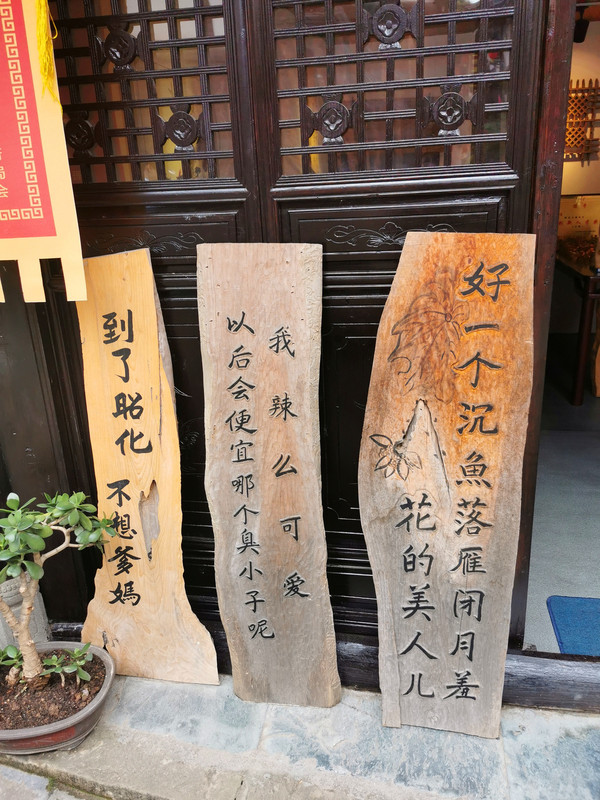 到了昭化 不想爹媽
我辣么可爱
以后会便宜哪个臭小子呢
好一个沉魚落雁闭月羞
花的美人儿